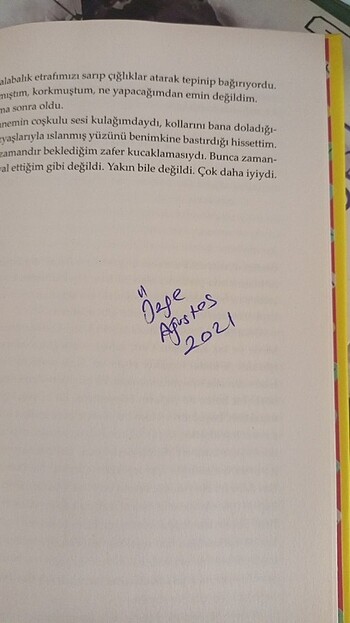 alabalık etrafımızı sarıp çığlıklar atarak tepinip bağırıyordu.
muştım, korkmuştum, ne yapacağımdan emin değildim.
na sonra oldu.
nemin coşkulu sesi kulağımdaydı, kollarını bana doladığı-
yaşlarıyla ıslanmış yüzünü benimkine bastırdığı hissettim.
zamandır beklediğim zafer kucaklamasıydı. Bunca zaman-
al ettiğim gibi değildi. Yakın bile değildi. Çok daha iyiydi.
Özge
Ağustos
2021